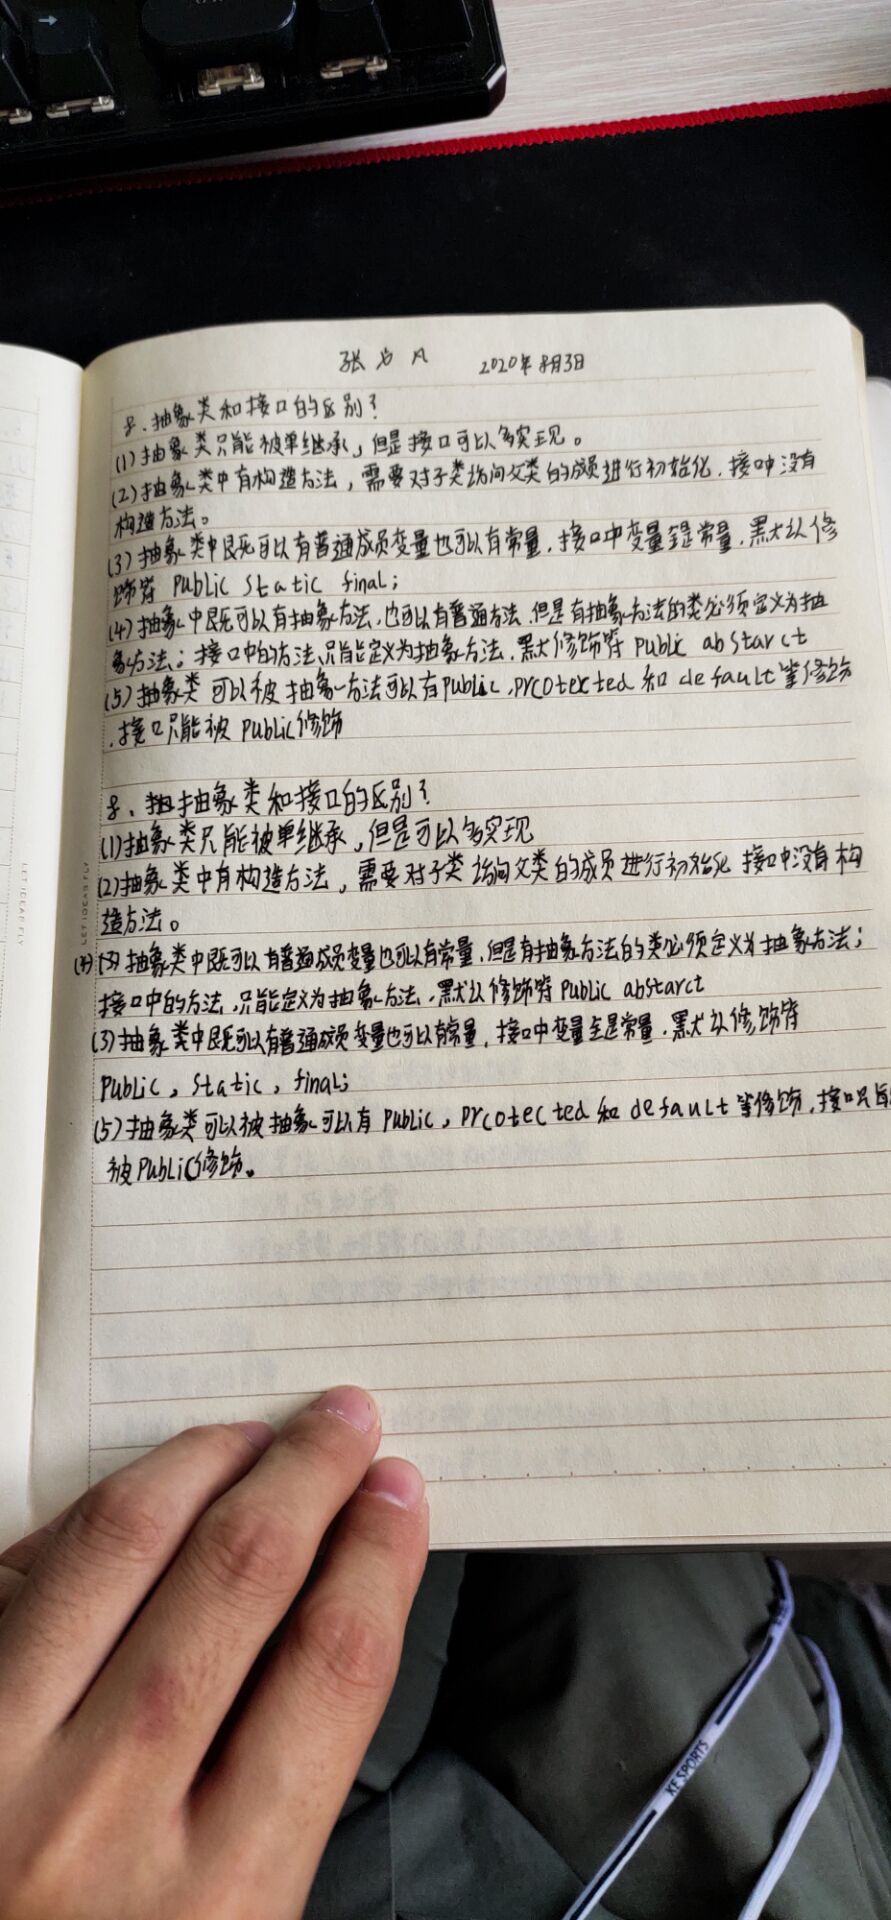 张 凡 2020年8月3日
8、抽象类和接口的区别？
(1)抽象类只能被单继承，但是接口可以多实现。
(2)抽象类中有构造方法，需要对子类访问父类的成员进行初始化，接口中没有
构造方法。
(3)抽象类中既可以有普通成员变量也可以有常量，接口中变量全是常量，黑犬认修
饰符 Public static final;
(4)抽象中既可以有抽象方法，也可以有普通方法，但是有抽象方法的类必须定义为抽
象方法；接口中的方法，只能定义为抽象方法，黑犬修饰符 public abstarct
(5)抽象类可以被抽象方法可以有public,prcotexted和default等修饰
，接口只能被public修饰
8、抽抽象类和接口的区别？
(1)抽象类只能被单继承，但是可以多实现
(2)抽象类中有构造方法，需要对子类访问父类的成员进行初始化 接口中没有构
造方法。
(4) 抽象类中既可以有普通成员变量也可以有常量，但是有抽象方法的类必须定义为抽象方法；
接口中的方法，只能定义为抽象方法，黑犬认修饰符public abstarct
(3)抽象类中既可以有普通成员变量也可以有常量，接口中变量全是常量，黑犬认修饰符
public，static，final;
(5)抽象类可以被抽象可以有public，prcotected和default等修饰，接口只能
被public修饰。
LET IDEAS FLY
LET IDEAS FLY
XF SPORTS